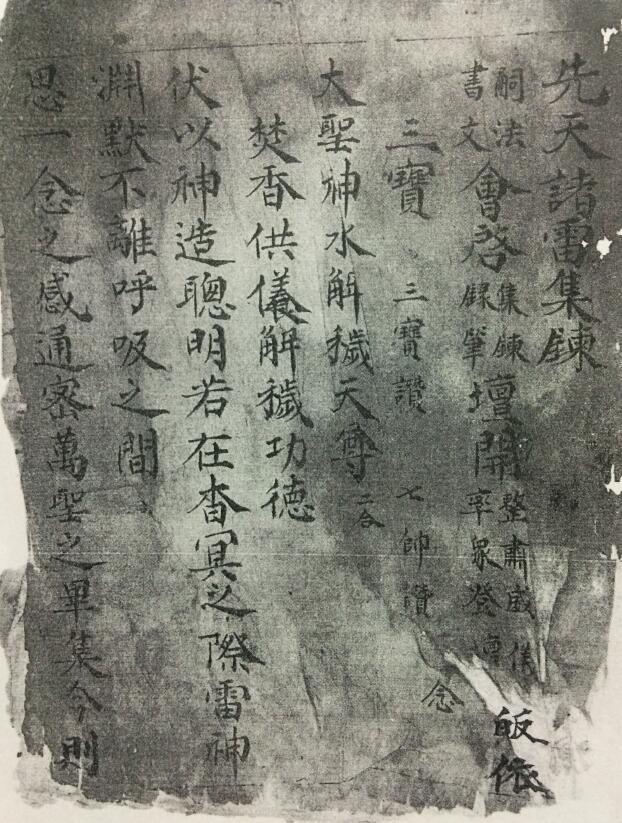 先天諸雷集鍊
嗣法書文會啓集鍊錄筆壇開整肅威儀率眾登壇皈依
三寶 三寶讚 七帥讚 念
大聖神水解穢天尊 二合
焚香供儀解穢功德
伏以神造聰明若在杳冥之際雷神
淵默不離呼吸之間
思一念之感通密萬聖之畢集今則